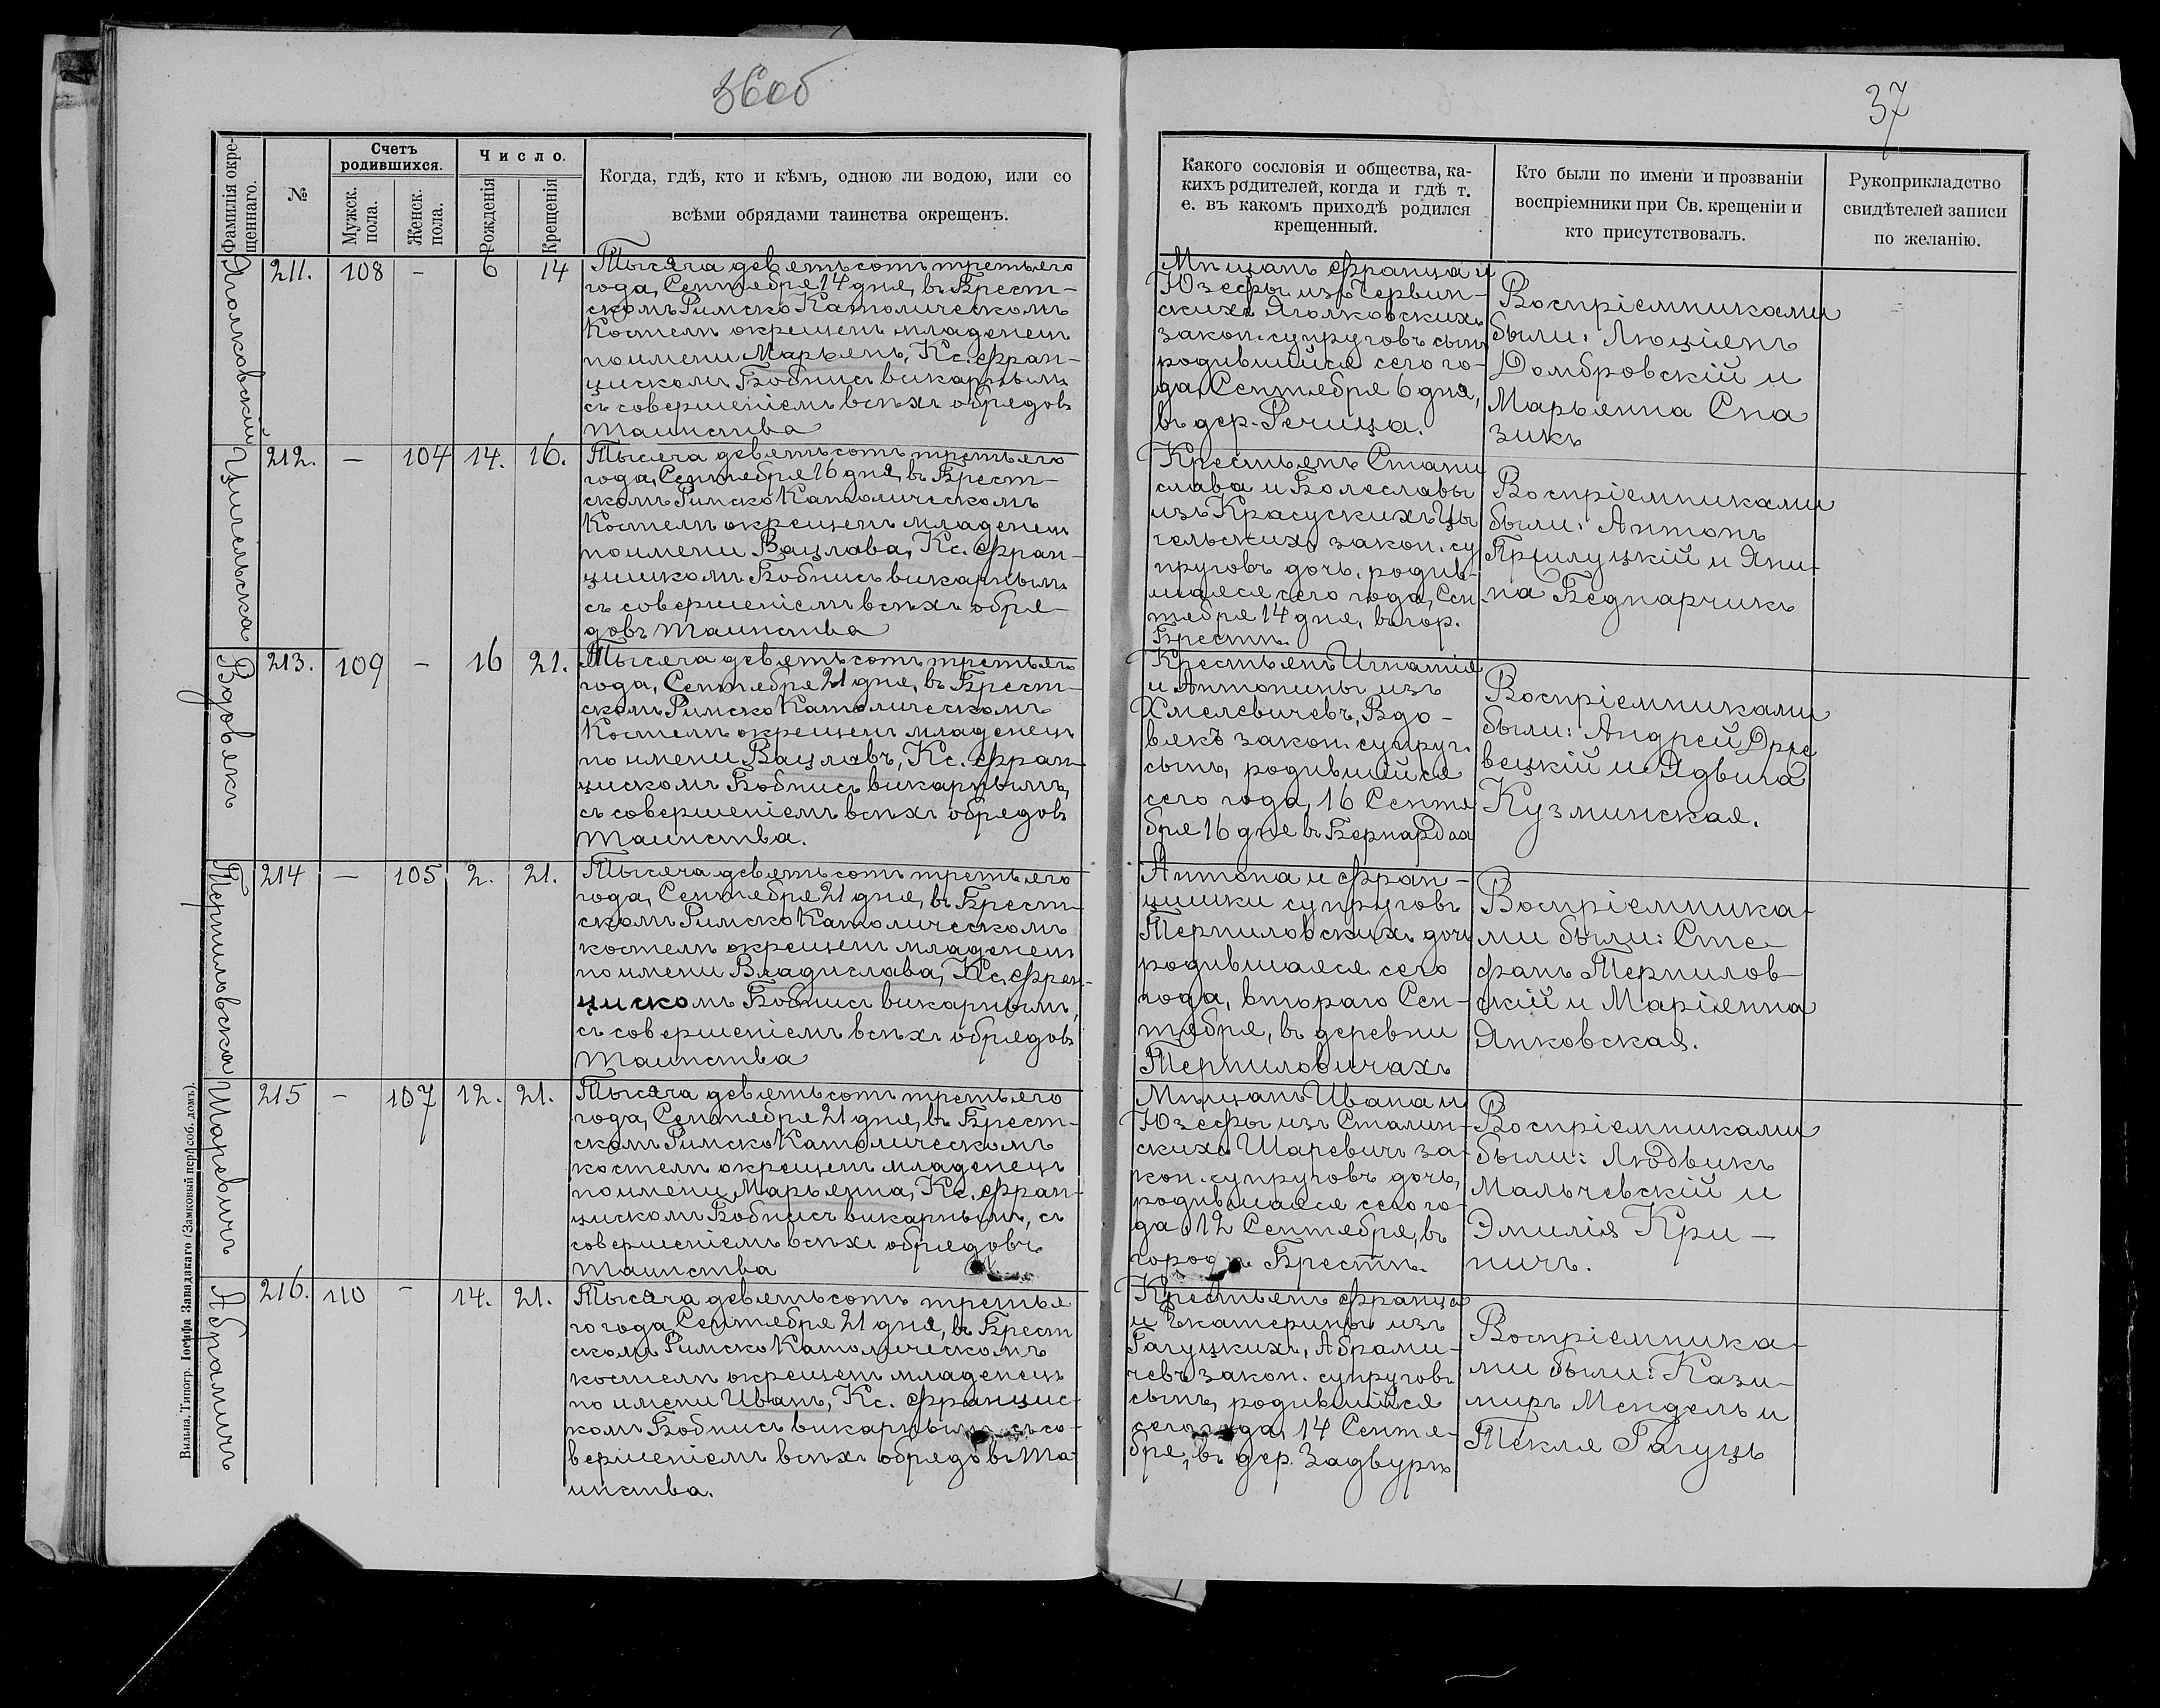 36об
37
Фамилія окре-
щеннаго.
№
Счетъ
родившихся.
Мужск.
пола.
Женск.
пола.
Число.
Рожденія
Крещенія
Когда, гдѣ, кто и кѣмъ, одною ли водою, или со
всѣми обрядами таинства окрещенъ.
Какого сословія и общества, ка-
кихъ родителей, когда и гдѣ т.
е. въ какомъ приходѣ родился
крещенный.
Кто были по имени и прозваніи
воспріемники при Св. крещеніи и
кто присутствовалъ.
Рукоприкладство
свидѣтелей записи
по желанію.
Яголковскій
211. 108 - 6 14
Тысяча девятьсотъ третьяго
года, Сентября 14 дня, въ Брест-
скомъ Римско Католическомъ
Костелѣ окрещенъ младенецъ
по имени Марьянъ, Кс. Фран-
цискомъ Бобнисъ викарнымъ
съ совершеніемъ всѣхъ обрядовъ
таинства
Мѣщанъ Франца и
Юзефы изъ Червин-
скихъ Яголковскихъ
закон. супруговъ сынъ
родившійся сего го-
да, Сентября 6 дня,
въ дер. Речица.
Воспріемниками
были: Люціянъ
Домбровскій и
Марьянна Спа
зикъ
Цыгельска
212. — 104 14. 16.
Тысяча девятьсотъ третьяго
года, Сентября 16 дня, въ Брест-
скомъ Римско Католическомъ
Костелѣ окрещенъ младенецъ
по имени Вацлава, Кс. Фран-
цишкомъ Бобнисъ викарнымъ
съ совершеніемъ всѣхъ обря-
довъ таинства
Крестьянъ Стани
слава и Болеславы
изъ Красускихъ Цы
гельскихъ закон. су
пруговъ дочь, родив-
шаяся сего года, Сен
тября 14 дня, въ гор.
Брестѣ.
Воспріемниками
были: Антонъ
Прилуцкій и Яни-
на Беднарчикъ
Вдовякъ
213. 109 - 16 21.
Тысяча девятьсотъ третьяго
года, Сентября 21 дня, въ Брест-
скомъ Римско Католическомъ
Костелѣ окрещенъ младенецъ
по имени Вацлавъ, Кс. Фран-
цискомъ Бобнисъ викарнымъ,
съ совершеніемъ всѣхъ обрядовъ
таинства.
Крестьянъ Игнатія
и Антонины изъ
Хмелевичевъ, Вдо-
вякъ закон. супруг.
сынъ, родившийся
сего года, 16 Сентя
бря 16 дня въ Бернардах
Воспріемниками
были: Андрей Држе
вецкій и Ядвига
Кузминская.
Терпиловска
214 — 105 2. 21.
Тысяча девятьсотъ третьяго
года, Сентября 21 дня, въ Брест-
скомъ Римско Католическомъ
костелѣ окрещенъ младенецъ
по имени Владислава, Кс. Фран-
цискомъ Бобнисъ викарнымъ,
съ совершеніемъ всѣхъ обрядовъ
таинства
Антона и Фран-
цишки супруговъ
Терпиловскихъ дочь
родившаяся сего
года, втораго Сен-
тября, въ деревни
Терпиловичахъ
Воспріемника-
ми были: Сте-
фанъ Терпилов-
скій и Маріянна
Янковская.
Шаревичъ
215 - 107 12. 21.
Тысяча девятьсотъ третьяго
года, Сентября 21 дня, въ Брест-
скомъ Римско Католическомъ
костелѣ окрещенъ младенецъ
по имени Марьянна, Кс. Фран-
цискомъ Бобнисъ викарнымъ, съ
совершеніемъ всѣхъ обрядовъ
таинства
Мѣщанъ Ивана и
Юзефы изъ Сталин-
скихъ Шаревичъ за-
кон. супруговъ дочь,
родившаяся сего го-
да 12 Сентября, въ
городѣ Брестѣ.
Воспріемниками
были: Людвикъ
Мальчевскій и
Эмилія Кри-
ничъ.
Абрамичъ
216. 110 - 14. 21.
Тысяча девятьсотъ третья
го года, Сентября 21 дня, въ Брест
скомъ Римско Католическомъ
костелѣ окрещенъ младенецъ
по имени Иванъ, Кс. Францис-
комъ Бобнисъ викарнымъ съ со-
вершеніемъ всѣхъ обрядовъ та-
инства.
Крестьянъ Франца
и Екатерины изъ
Гагуцкихъ, Абрами-
чевъ закон. супруговъ
сынъ, родившійся
сего года, 14 Сентя-
бря, въ дер. Задвурцѣ
Воспріемника-
ми были: Кази-
миръ Мендель и
Текля Гагуцъ
Вильна, Типогр. Іосифа Завадзкаго (Замковый пер. соб. домъ).